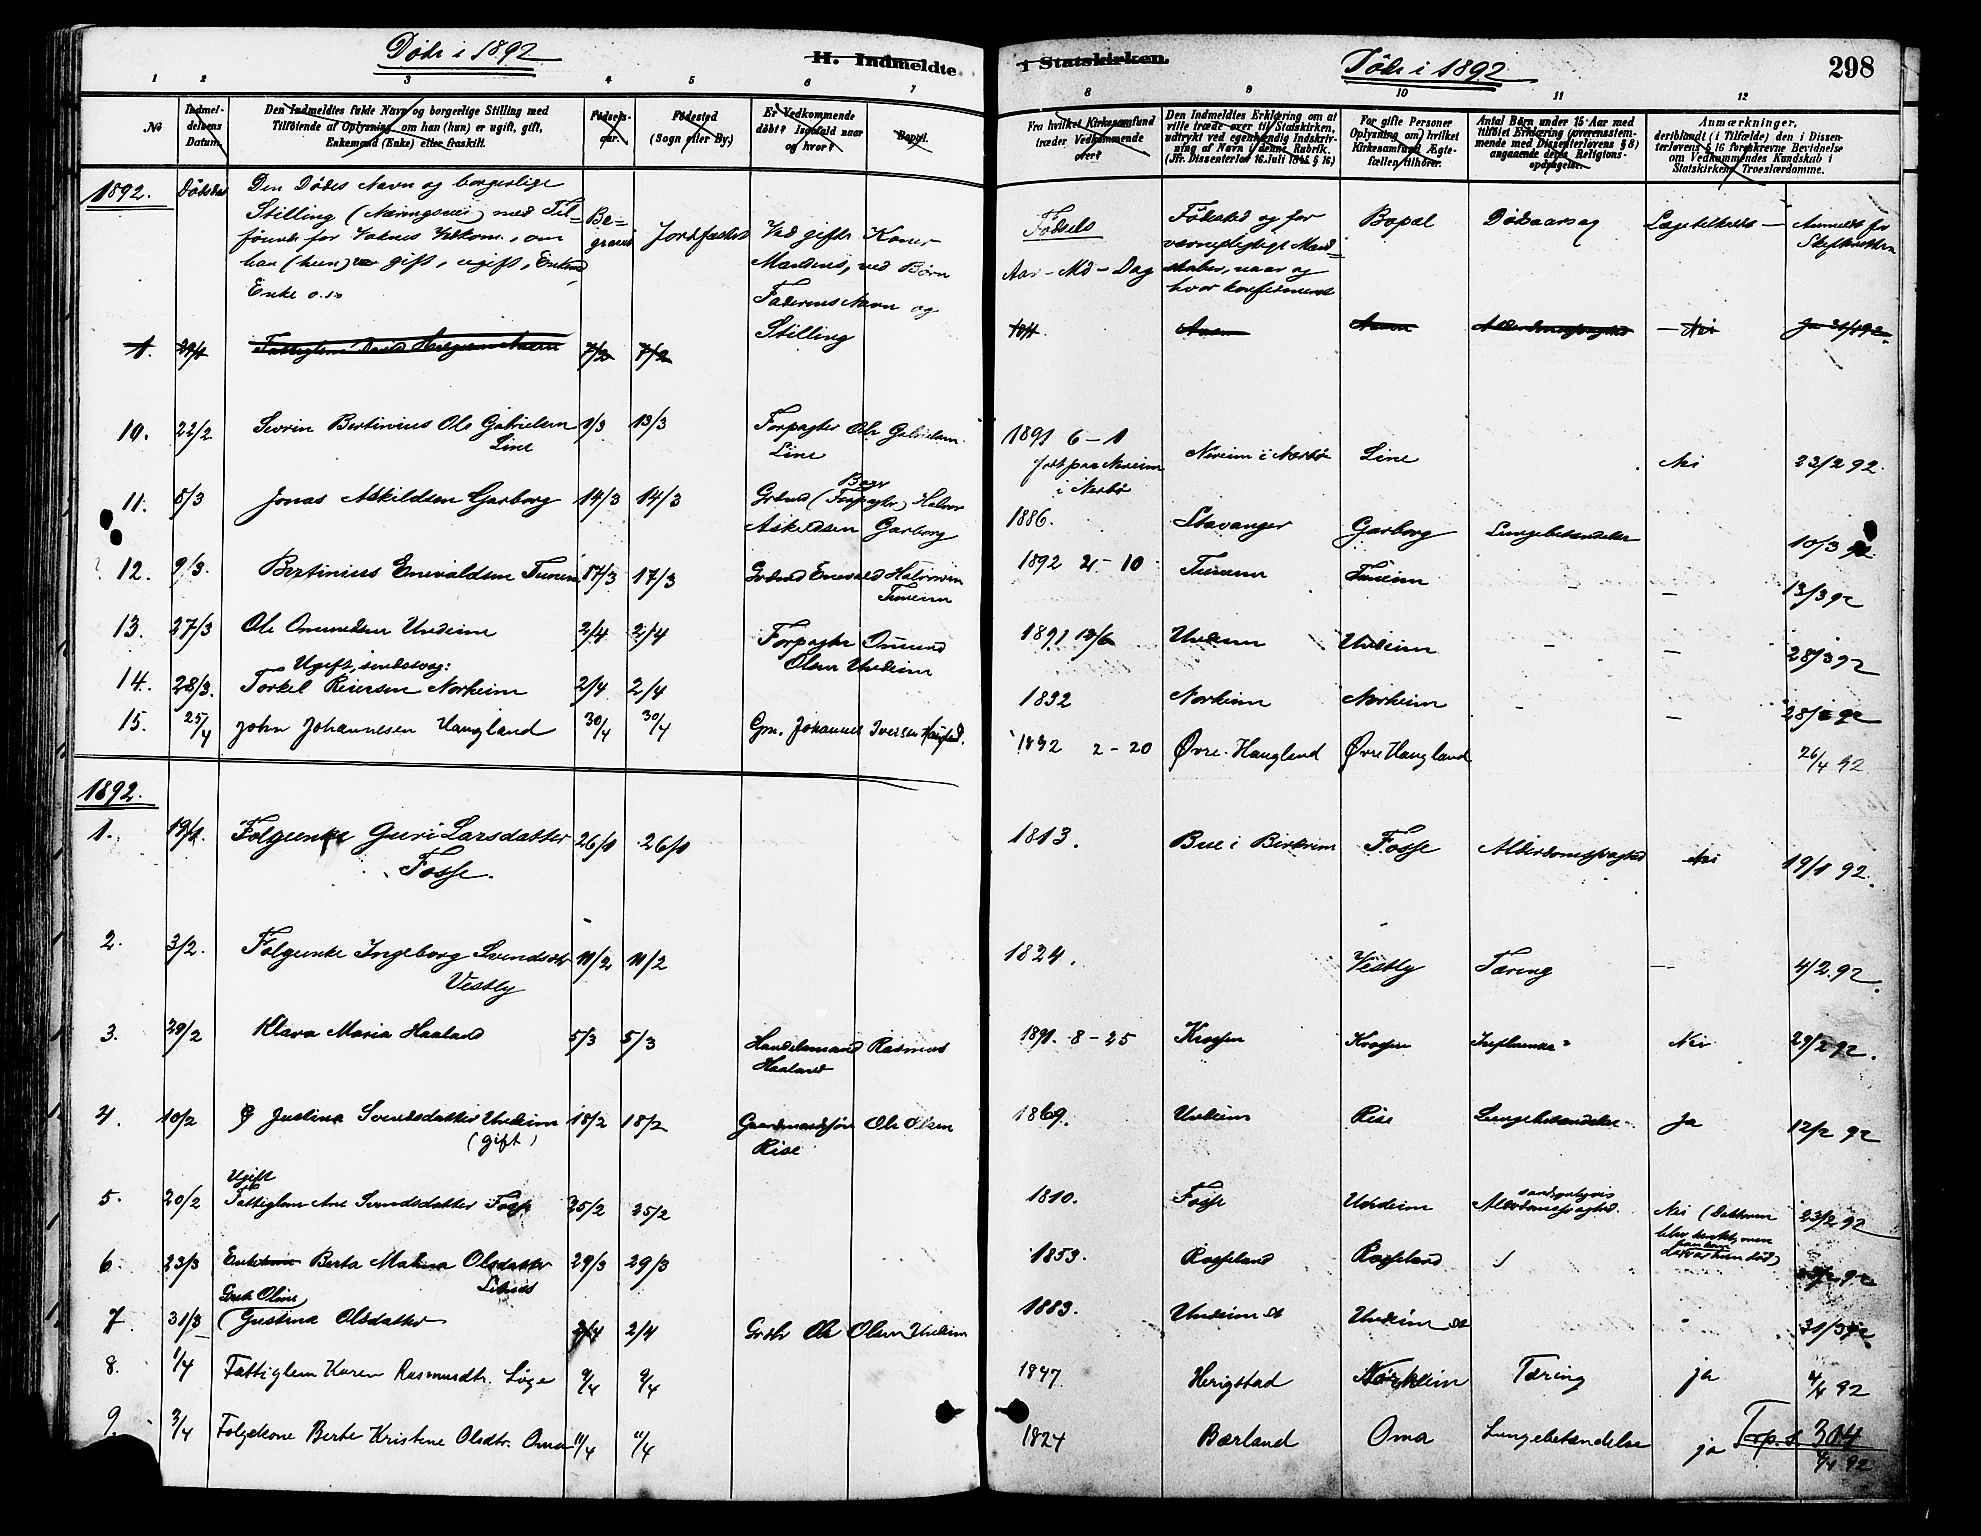 Døde i 1892
H. Indmeldte
i Statskirken.
Døde i 1892
298
1 2 3 4 5 6 7
8 9 10 11 12
No
Indmel-
delsens
Datum.
Den Indmeldtes fulde Navn og borgerlige Stilling med
Tilføiende af Oplysning, om han (hun) er ugift, gift,
Enkemand (Enke) eller fraskilt.
Fødsels-
aar.
Fødested
(Sogn eller By.)
Er Vedkommende
døbt? Isaafald naar
og hvor?
Bopæl.
Fra hvilket Kirkesamfund
træder Vedkommende
over?
Den Indmeldtes Erklæring om at
ville træde over til Statskirken,
udtrykt ved egenhændig Indskriv-
ning af Navn i denne Rubrik.
(Jfr. Dissenterlov 16. Juli 1845 § 16)
For gifte Personer
Oplysning om, hvilket
Kirkesamfund Ægte-
fællen tilhører.
Antal Børn under 15 Aar med
tilføiet Erklæring (overensstem-
mende med Dissenterlovens § 8)
angaaende deres Religions-
opdragelse.
Anmærkninger,
deriblandt (i Tilfælde) den i Dissen-
terlovens § 16 foreskrevne Bevidnelse
om Vedkommendes Kundskab i
Statskirkens Troeslærdomme.
1892. Dødsdat
Den Dødes Navn og borgerlige
Stilling (Næringsvei) med Til=
føiende for Voksnes Vedkom., om
han (hun) var gift, ugift, Enkmd,
Enke o. s.
Be=
gravet
Jordfæstet
Ved gifte Koner
Mandens, ved Børn
Faderens Navn og
Stilling
Fødsels
Aar - Md - Dag
Fødested og for
værnepligtigt Mand=
skaber, naar og
hvor konfirmeret
Bopæl
Dødsaarsag
Lægetilkaldt
Anmeldt for
Skifteretten
1. 7/2 7/2 Nei
10. 22/2 Sevrin Bertinius Ole Gabrielsen 1/3 13/3 Forpagter Ole Gabrielsen 1891 6 - 1 Line Nei 23/2 92.
Line Line
i Nærbø
11. 5/3 Jonas Askildsen Garborg 14/3 14/3 Grdmd (Forpagter) Halvor 1886. Stavanger Garborg Lungebetændelse 10/3 92
Askildsen Garborg
12. 9/3. Bertinius Enevaldsen Tunem 17/3 17/3 Grdmd Enevald Halvorsen 1892 2 - 10 Tunem Tuneim - - 13/3 92
Tuneim
13. 27/3 Ole Omundsen Undeim 2/4 2/4 Forpagter Omund 1891 Undeim Undeim - - 28/3 92
Olsen Undeim
Ugift,
14. 28/3. Torkel Reiersen Norheim 2/4 2/4 1832 Norheim Norheim - - 92
15. 25/4 John Johannesen Haugland 30/4 30/4 Gm. Johannes Iversen 1892 2 - 20 Øvre Haugland Øvre Haugland 26/4 92
1892.
1. 19/1. Folgeenke Guri Larsdatter 26/1 26/1 1813. Bue i Birkrem Fosse Alderdomssvaghed Nei 19/1 92.
Fosse.
2. 3/2. Folgeenke Ingeborg Svendsdtr 11/2 11/2 1824. Vestly Tæring - 4/2.92.
Vestly
3. 29/2 Klara Maria Haaland 5/3 5/3 Handelsmand Rasmus 1891. 8 - 25 Krossen Krossen Influenza Nei 29/2 92.
Haaland
4. 10/2 Justina Svendsdatter Undeim 18/2 18/2 Gaardmandssøn Ole Olsen 1869. Undeim Rise Lungebetændelse Ja 12/2 92
(gift) Rise
Ugift
5. 20/2 Fattiglem Ane Svendsdatter Fosse 25/2 25/2 1810. Fosse Undeim Alderdomssvaghed. Nei (Doktoren 23/2 92
6. 23/3 Enke Berta Malina Olsdatter 29/3 29/3 1853. Rosseland Rosseland 92
7 31/3 Gustina Olsdatter 2/4 2/4 Ole Olsen Undeim 1883. Undeim Undeim 31/3 92
8. 1/4 Fattiglem Karen Rasmusdtr. Löge 9/4 9/4 1847 Herigstad Norheim Tæring ja 4/4 92
9. 3/4 Folgekone Berte Kristine Olsdtr. Oma 11/4 11/4 1824 Bærland Oma Lungebetændelse ja 92
304